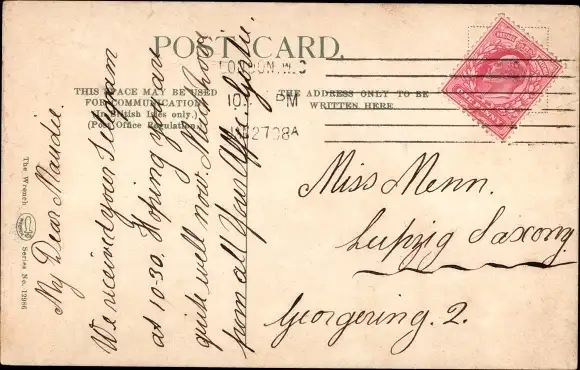 POST CARD.
THIS SPACE MAY BE USED
FOR COMMUNICATION
(In British Isles only.)
(Post Office Regulation.)
THE ADDRESS ONLY TO BE
WRITTEN HERE
LONDON. W.C
10. PM
27 08A
POSTAGE
ONE PENNY
My Dear Maudie.
We received your Telegram
at 10-30. Hoping you are
quite well now. Much love
from all Your Affec.
Miss Menn.
Leipzig Saxony
Georgering. 2.
The Wrench
Series No. 12986